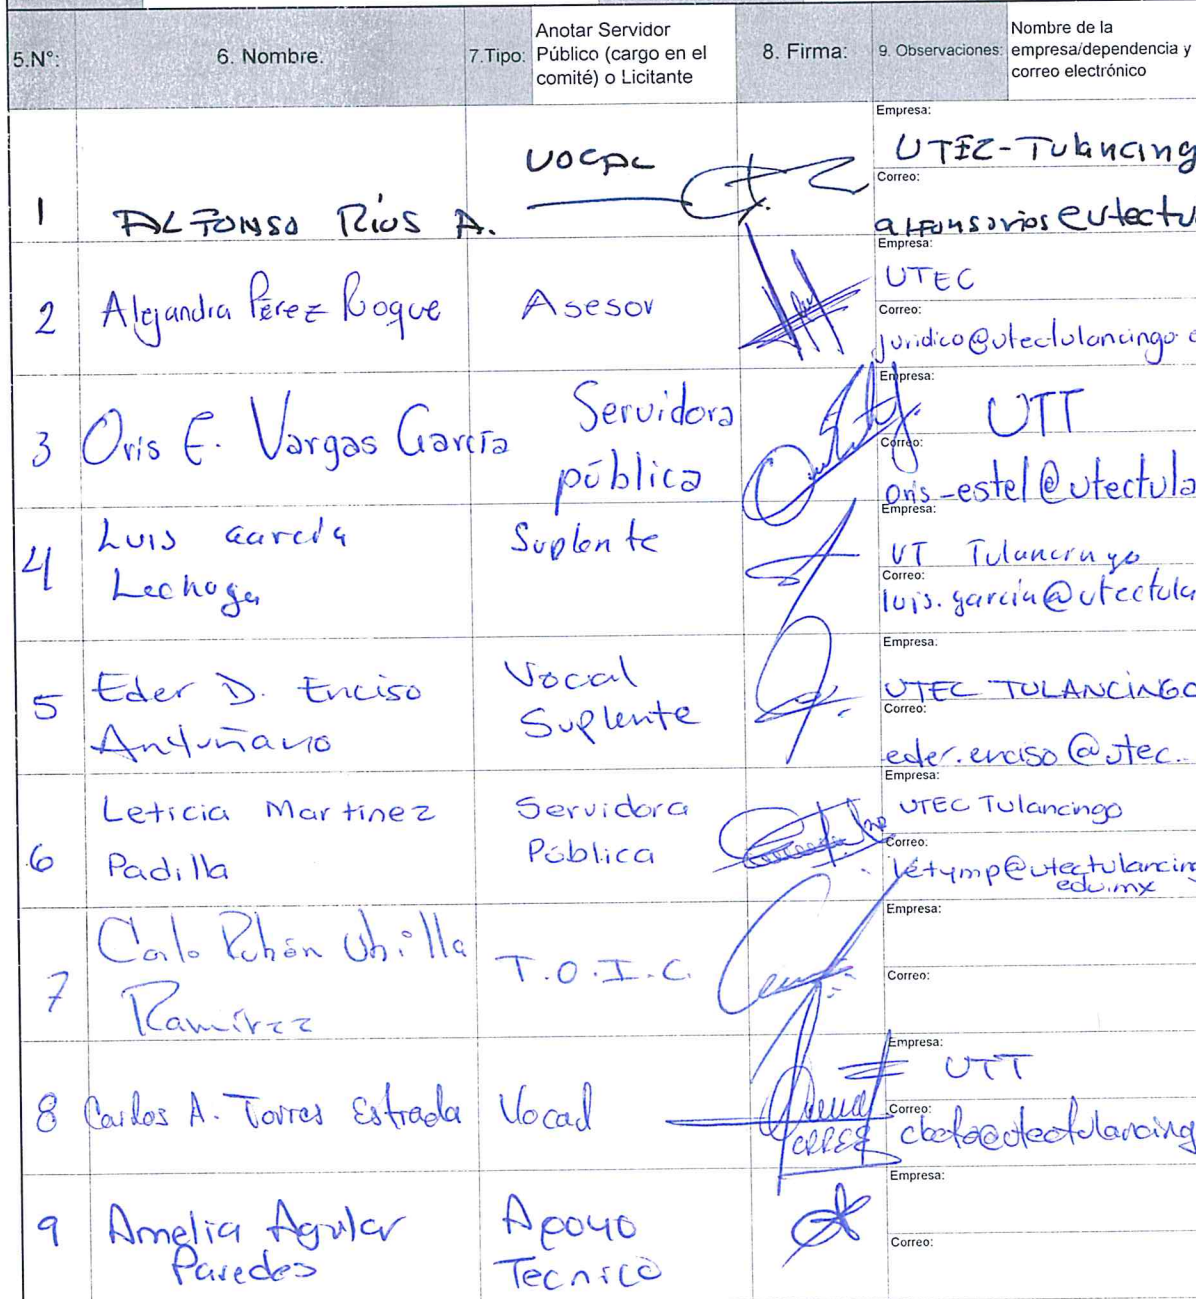 5.N°:
6. Nombre.
7.Tipo:
Anotar Servidor
Público (cargo en el
comité) o Licitante
8. Firma:
9. Observaciones:
Nombre de la
empresa/dependencia y
correo electrónico
1
ALFONSO Ríos A.
VOCAL
Empresa:
UTEC-Tulancing
Correo:
alfonsorios@utectu
2
Alejandra Pérez Roque
Asesor
Empresa:
UTEC
Correo:
juridico@utectulancingo.e
3
Oris E. Vargas García
Servidora
pública
Empresa:
UTT
Correo:
oris-estel@utectula
4
Luis García
Lechuga
Suplente
Empresa:
UT Tulancingo
Correo:
luis.garcia@utectula
5
Eder D. Enciso
Antuñano
Vocal
Suplente
Empresa:
UTEC TULANCINGO
Correo:
eder.enciso@utec.
6
Leticia Martinez
Padilla
Servidora
Pública
Empresa:
UTEC Tulancingo
Correo:
letymp@utectulancing
edu.mx
7
Carlo Rubén Ubilla
Ramírez
T.O.I.C.
Empresa:
Correo:
8
Carlos A. Torres Estrada
Vocal
Empresa:
UTT
Correo:
9
Amelia Aguilar
Paredes
Apoyo
Tecnico
Empresa:
Correo: